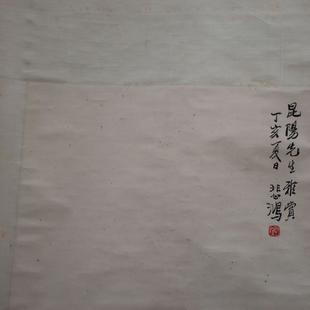 昆陽先生雅賞
丁亥夏日 悲鴻